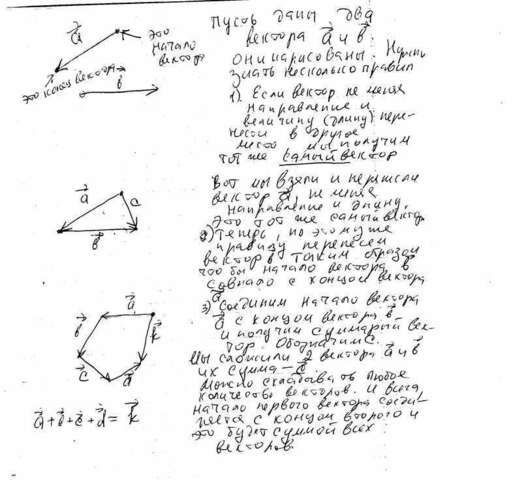 a⃗
это
начало
вектора
это конец вектора
b⃗
Пусть даны два
вектора a⃗ и b⃗.
Они нарисованы. Нужно
знать несколько правил
1). Если вектор не меняя
направление и
величину (длину) пере-
нести в другое
место мы получим
тот же самый вектор
a⃗
c
b⃗
Вот мы взяли и перенесли
вектор a⃗, не меняя
направление и длину.
Это тот же самый вектор
2) Теперь, по этому же
правилу перенесем
вектор b⃗ таким образом
чтобы начало вектора b⃗
совпало с концом вектора
a⃗
3) Соединим начало вектора
a⃗ с концом вектора b⃗
и получим суммарный век-
тор. Обозначим c⃗.
Мы сложили 2 вектора a⃗ и b⃗
их сумма – c⃗
Можно складывать любое
количество векторов. И всегда
начало первого вектора соеди-
няется с концом второго и
это будет суммой всех
векторов.
a⃗
b⃗
k⃗
c⃗
d⃗
a⃗ + b⃗ + c⃗ + d⃗ = k⃗